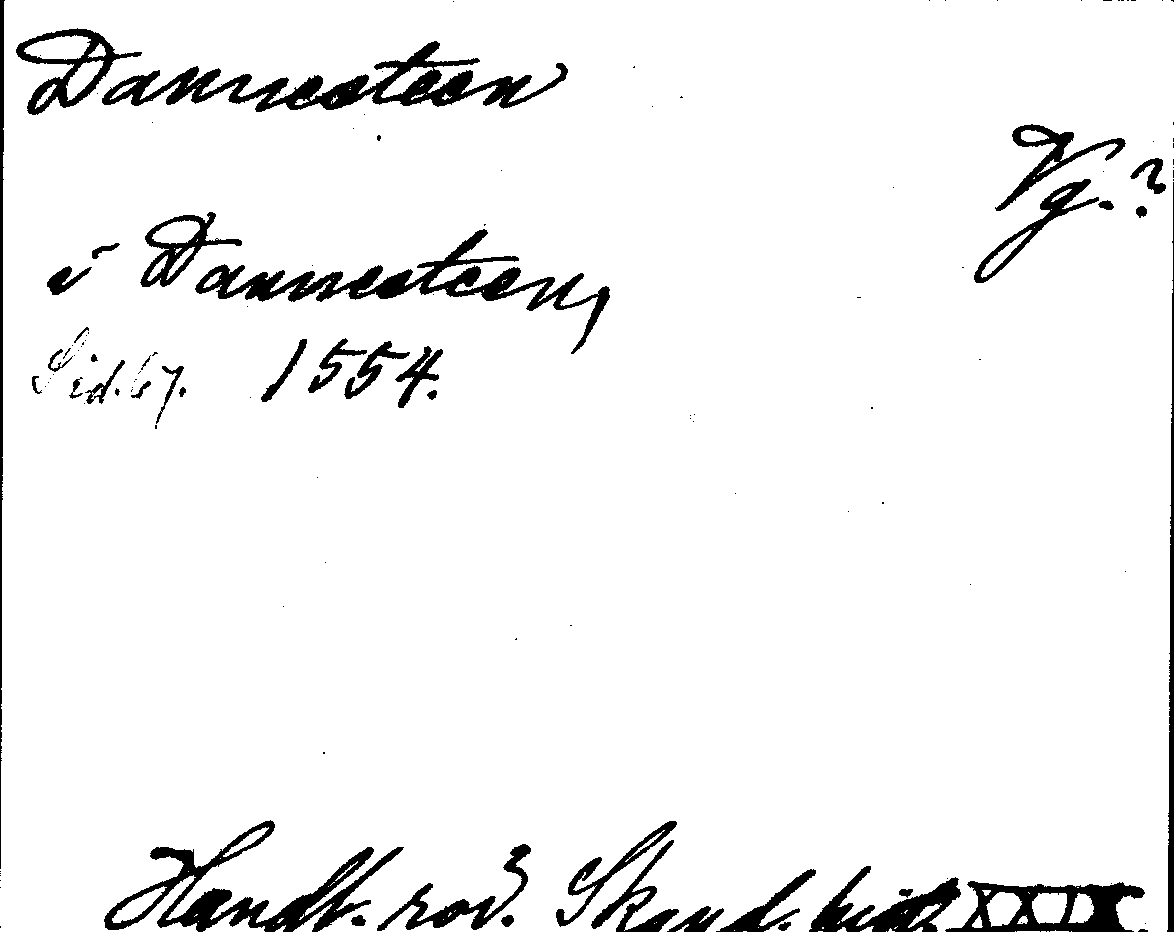 Dannesteen
Vg.?
i Dannesteen,
Sid. 67. 1554.
Handl. rör. Skand. hist.